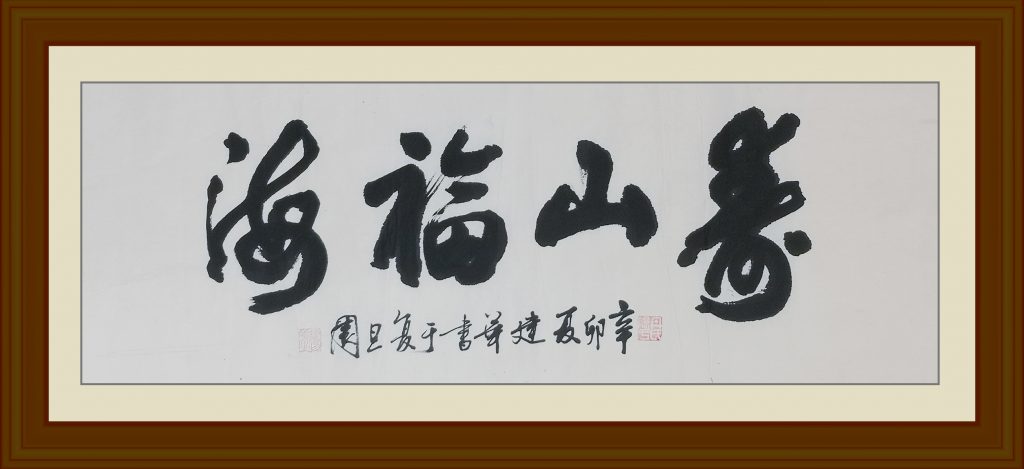 寿山福海
辛卯夏建华书于复旦园